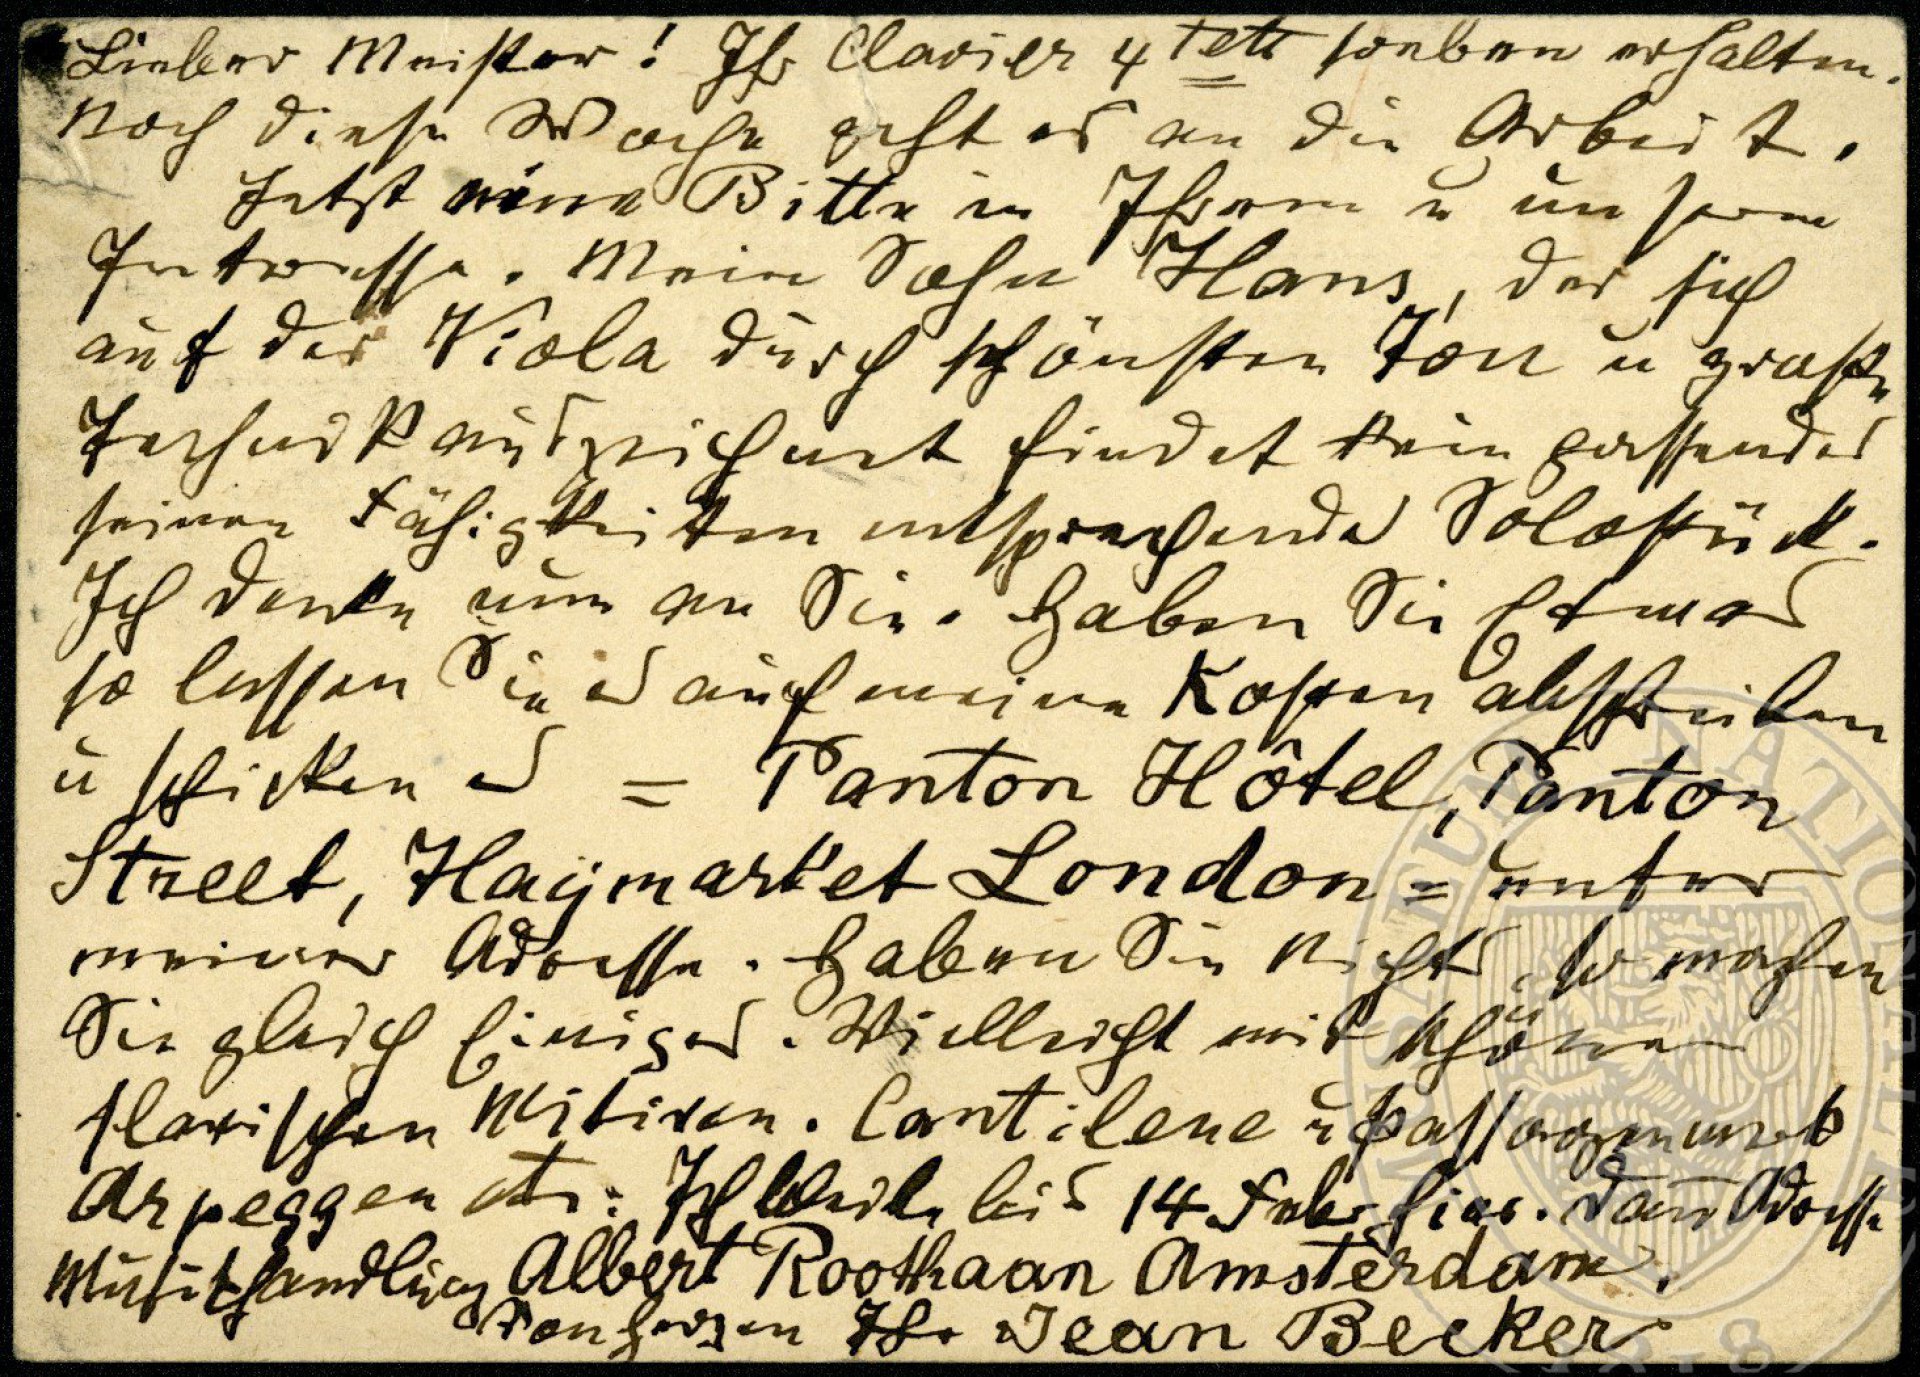 Lieber Meister! Ihr Clavier 4tett soeben erhalten.
Noch diese Woche geht es an die Arbeit.
Jetzt eine Bitte in Ihrem u unserm
Intresse. Mein Sohn Hans, der sich
auf der Viola durch schönsten Ton u große
Technik auszeichnet findet kein passendes
seinen Fähigkeiten entsprechendes Solostück.
Ich denke nun an Sie. Haben Sie Etwas
so lassen Sie es auf meine Kosten abschreiben
u schicken es = Panton Hôtel, Panton
Street, Haymarket London = unter
meiner Adresse. Haben Sie Nichts, so machen
Sie gleich Einiges. Vielleicht mit schönen
slavischen Motiven. Cantilene u Passagenwerk
Arpeggen etc. Ich bleibe bis 14 Febr hier. Dann Adresse
Musikhandlung Albert Roothaan Amsterdam.
Von Herzen Ihr Jean Becker
MUSAEUM NATIONALE
1818